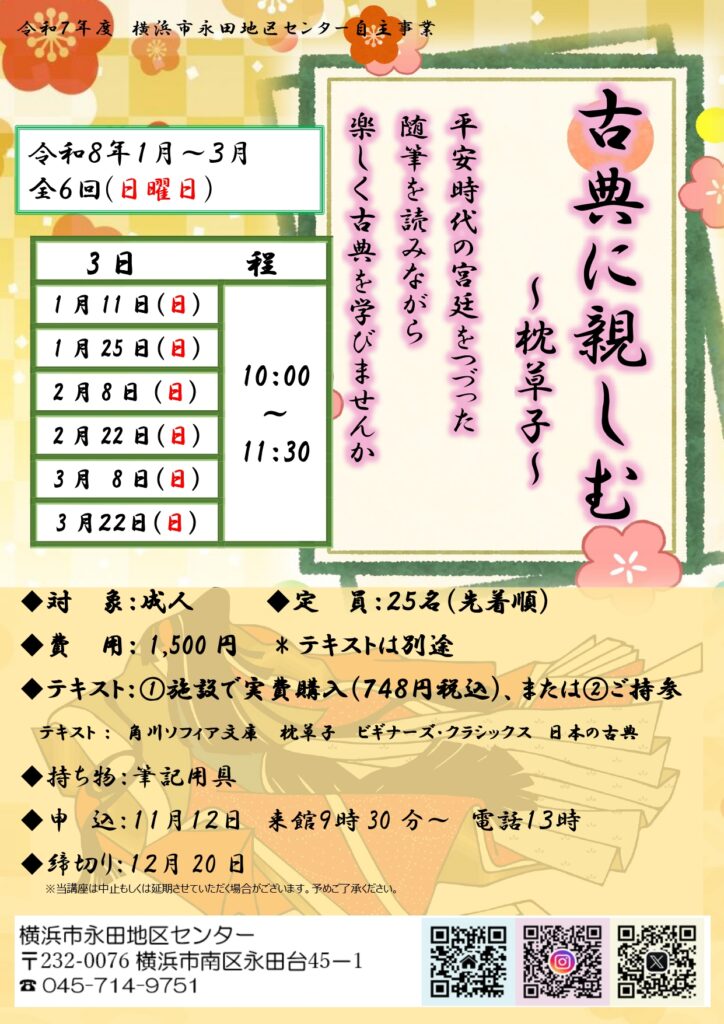 令和7年度　横浜市永田地区センター自主事業
古典に親しむ
～枕草子～
平安時代の宮廷をつづった
随筆を読みながら
楽しく古典を学びませんか
令和8年1月～3月
全6回(日曜日)
3日　程
1月11日(日)
1月25日(日)
2月8日(日)
2月22日(日)
3月 8日(日)
3月22日(日)
10:00
～
11:30
◆対　象:成人　◆定　員:25名(先着順)
◆費　用: 1,500円　＊テキストは別途
◆テキスト:①施設で実費購入(748円税込)、または②ご持参
テキスト： 角川ソフィア文庫　枕草子　ビギナーズ・クラシックス　日本の古典
◆持ち物:筆記用具
◆申　込:11月12日　来館9時30分～　電話13時
◆締切り:12月20日
※当講座は中止もしくは延期させていただく場合がございます。予めご了承ください。
横浜市永田地区センター
〒232-0076 横浜市南区永田台45ー1
☎045-714-9751